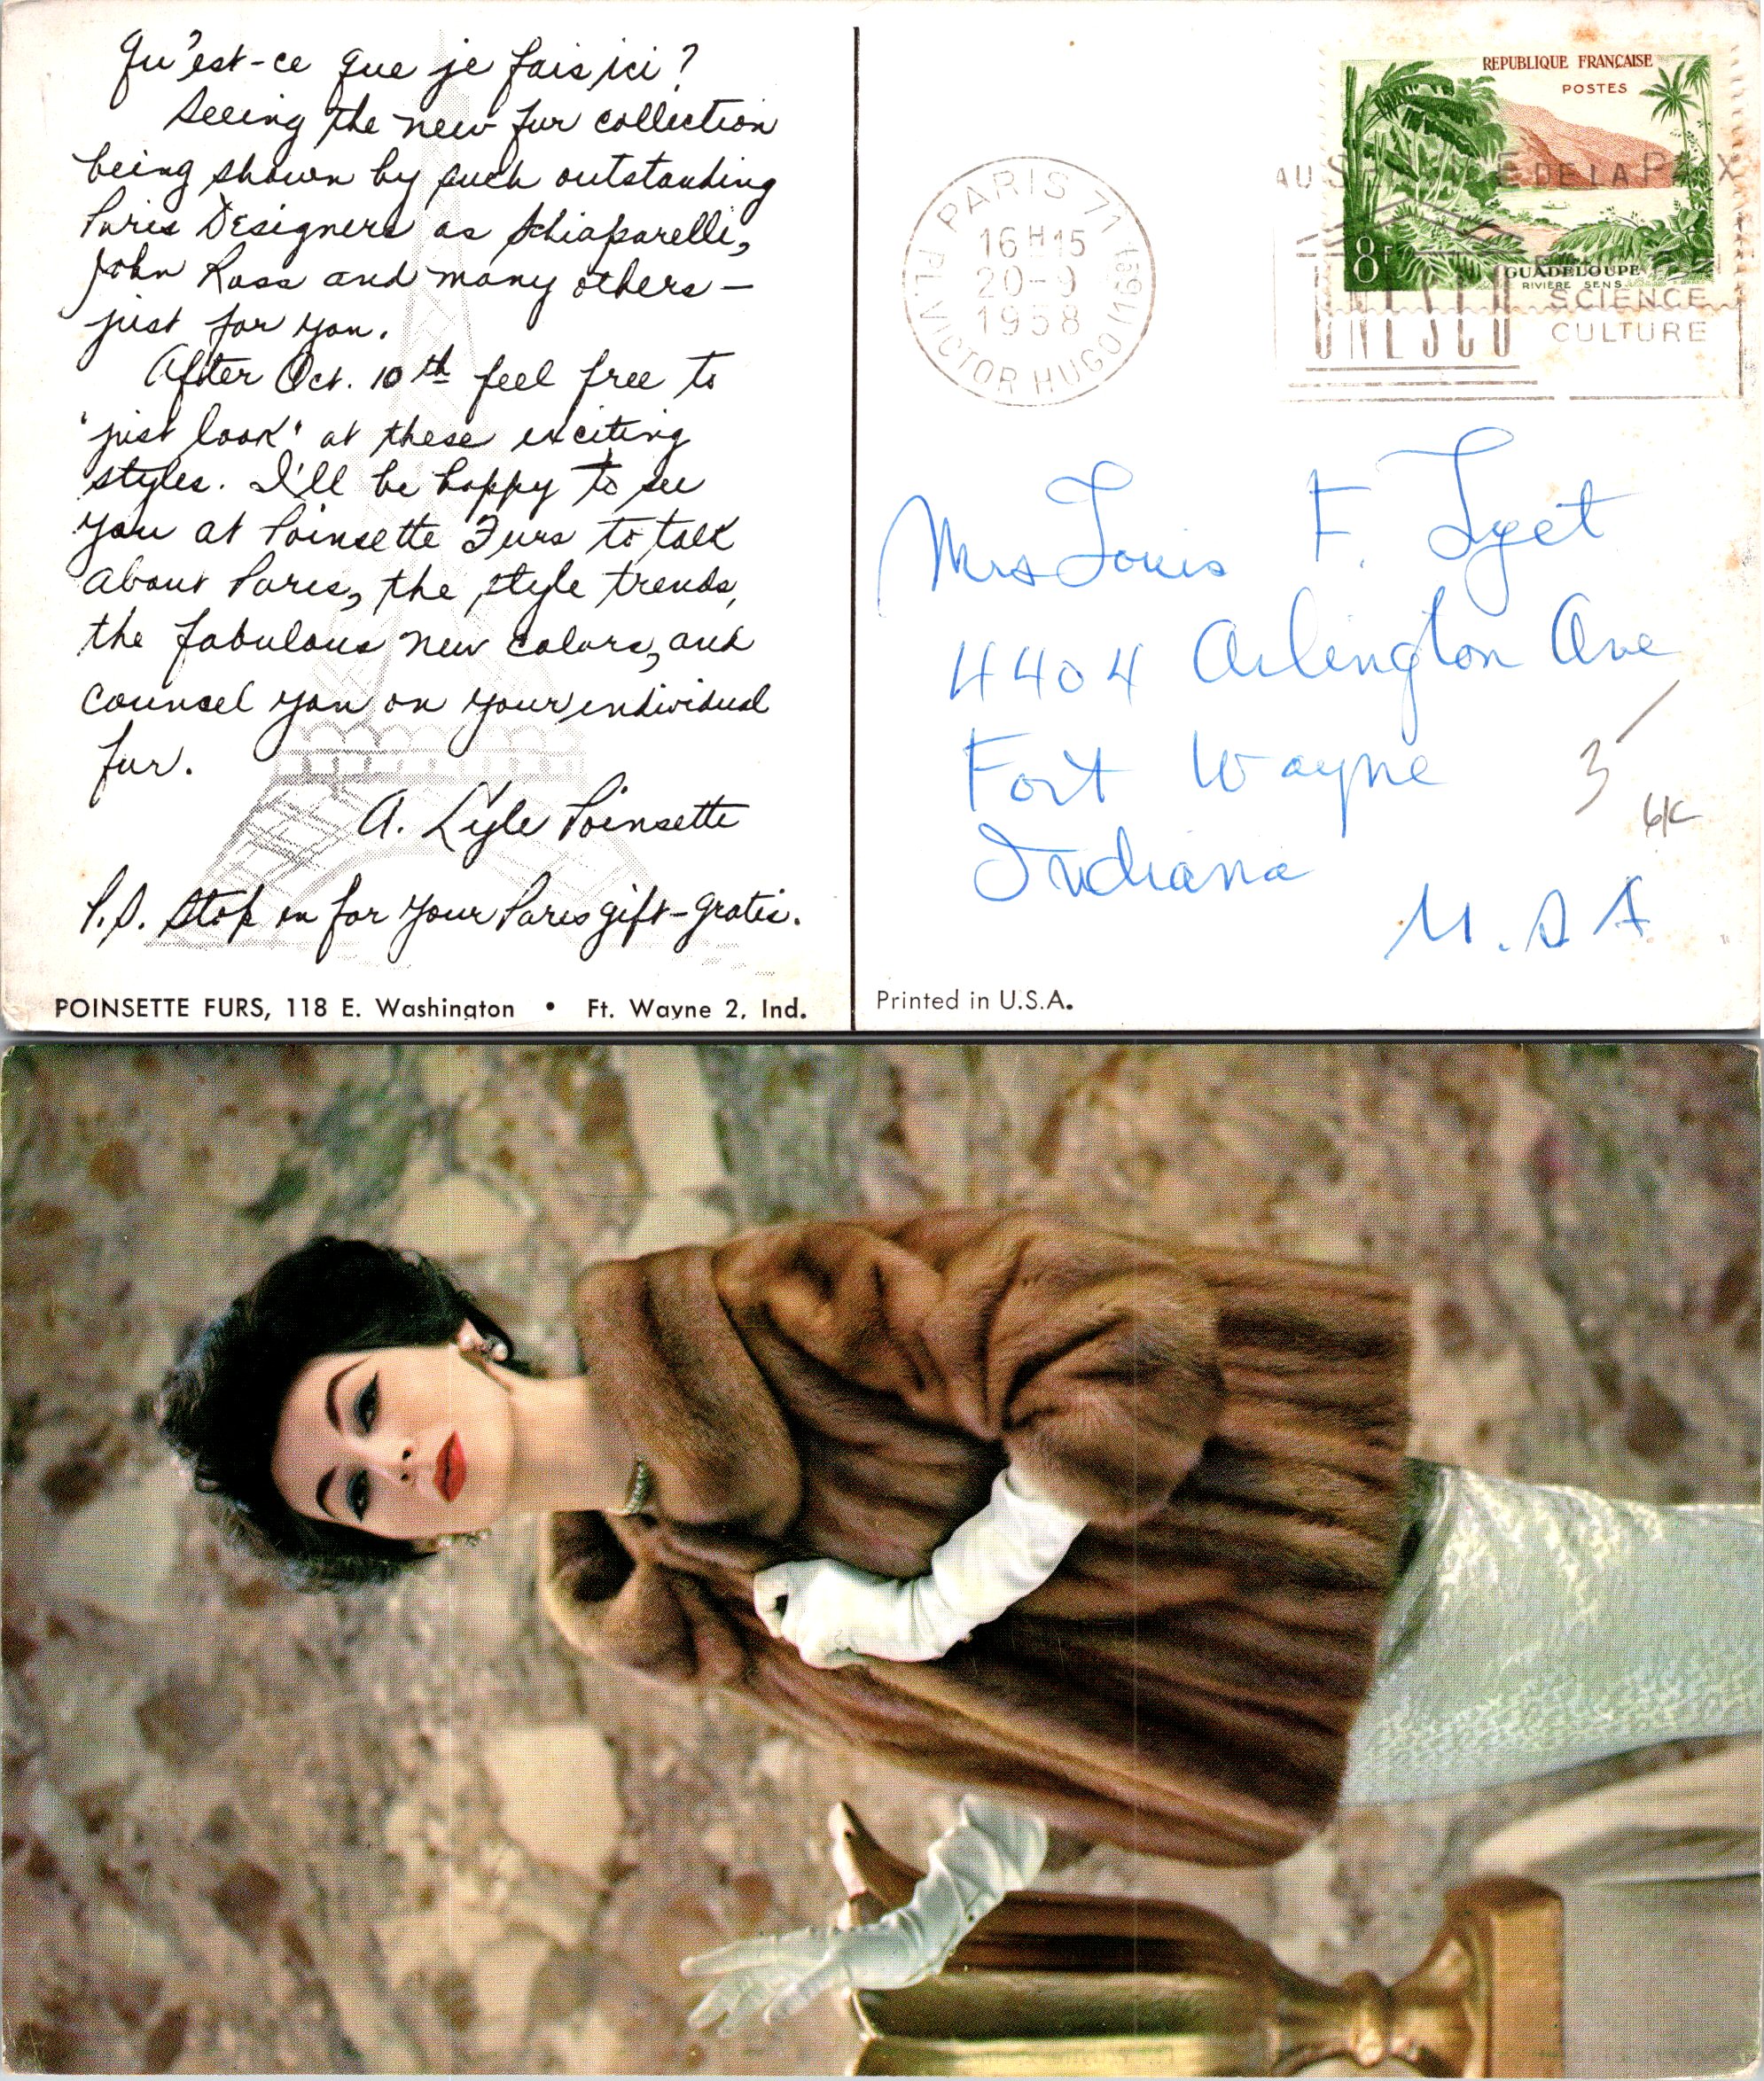 Qu'est-ce que je fais ici?
Seeing the new fur collection
being shown by such outstanding
Paris Designers as Schiaparelli,
John Ross and many others —
just for you.
After Oct. 10th feel free to
"just look" at these exciting
styles. I'll be happy to see
you at Poinsette Furs to talk
about Paris, the style trends,
the fabulous new colors, and
counsel you on your individual
fur.
A. Lyle Poinsette
P.S. Stop in for your Paris gift - gratis.
POINSETTE FURS, 118 E. Washington • Ft. Wayne 2, Ind.
REPUBLIQUE FRANÇAISE
POSTES
8F
GUADELOUPE
RIVIÈRE SENS
PARIS 71
16H15
20-9
1958
PL. VICTOR HUGO (16e)
AU SERVICE DE LA PAIX
UNESCO
SCIENCE
CULTURE
Mrs Louis F. Lyet
4404 Arlington Ave
Fort Wayne
Indiana
U.S.A
3
6K
Printed in U.S.A.